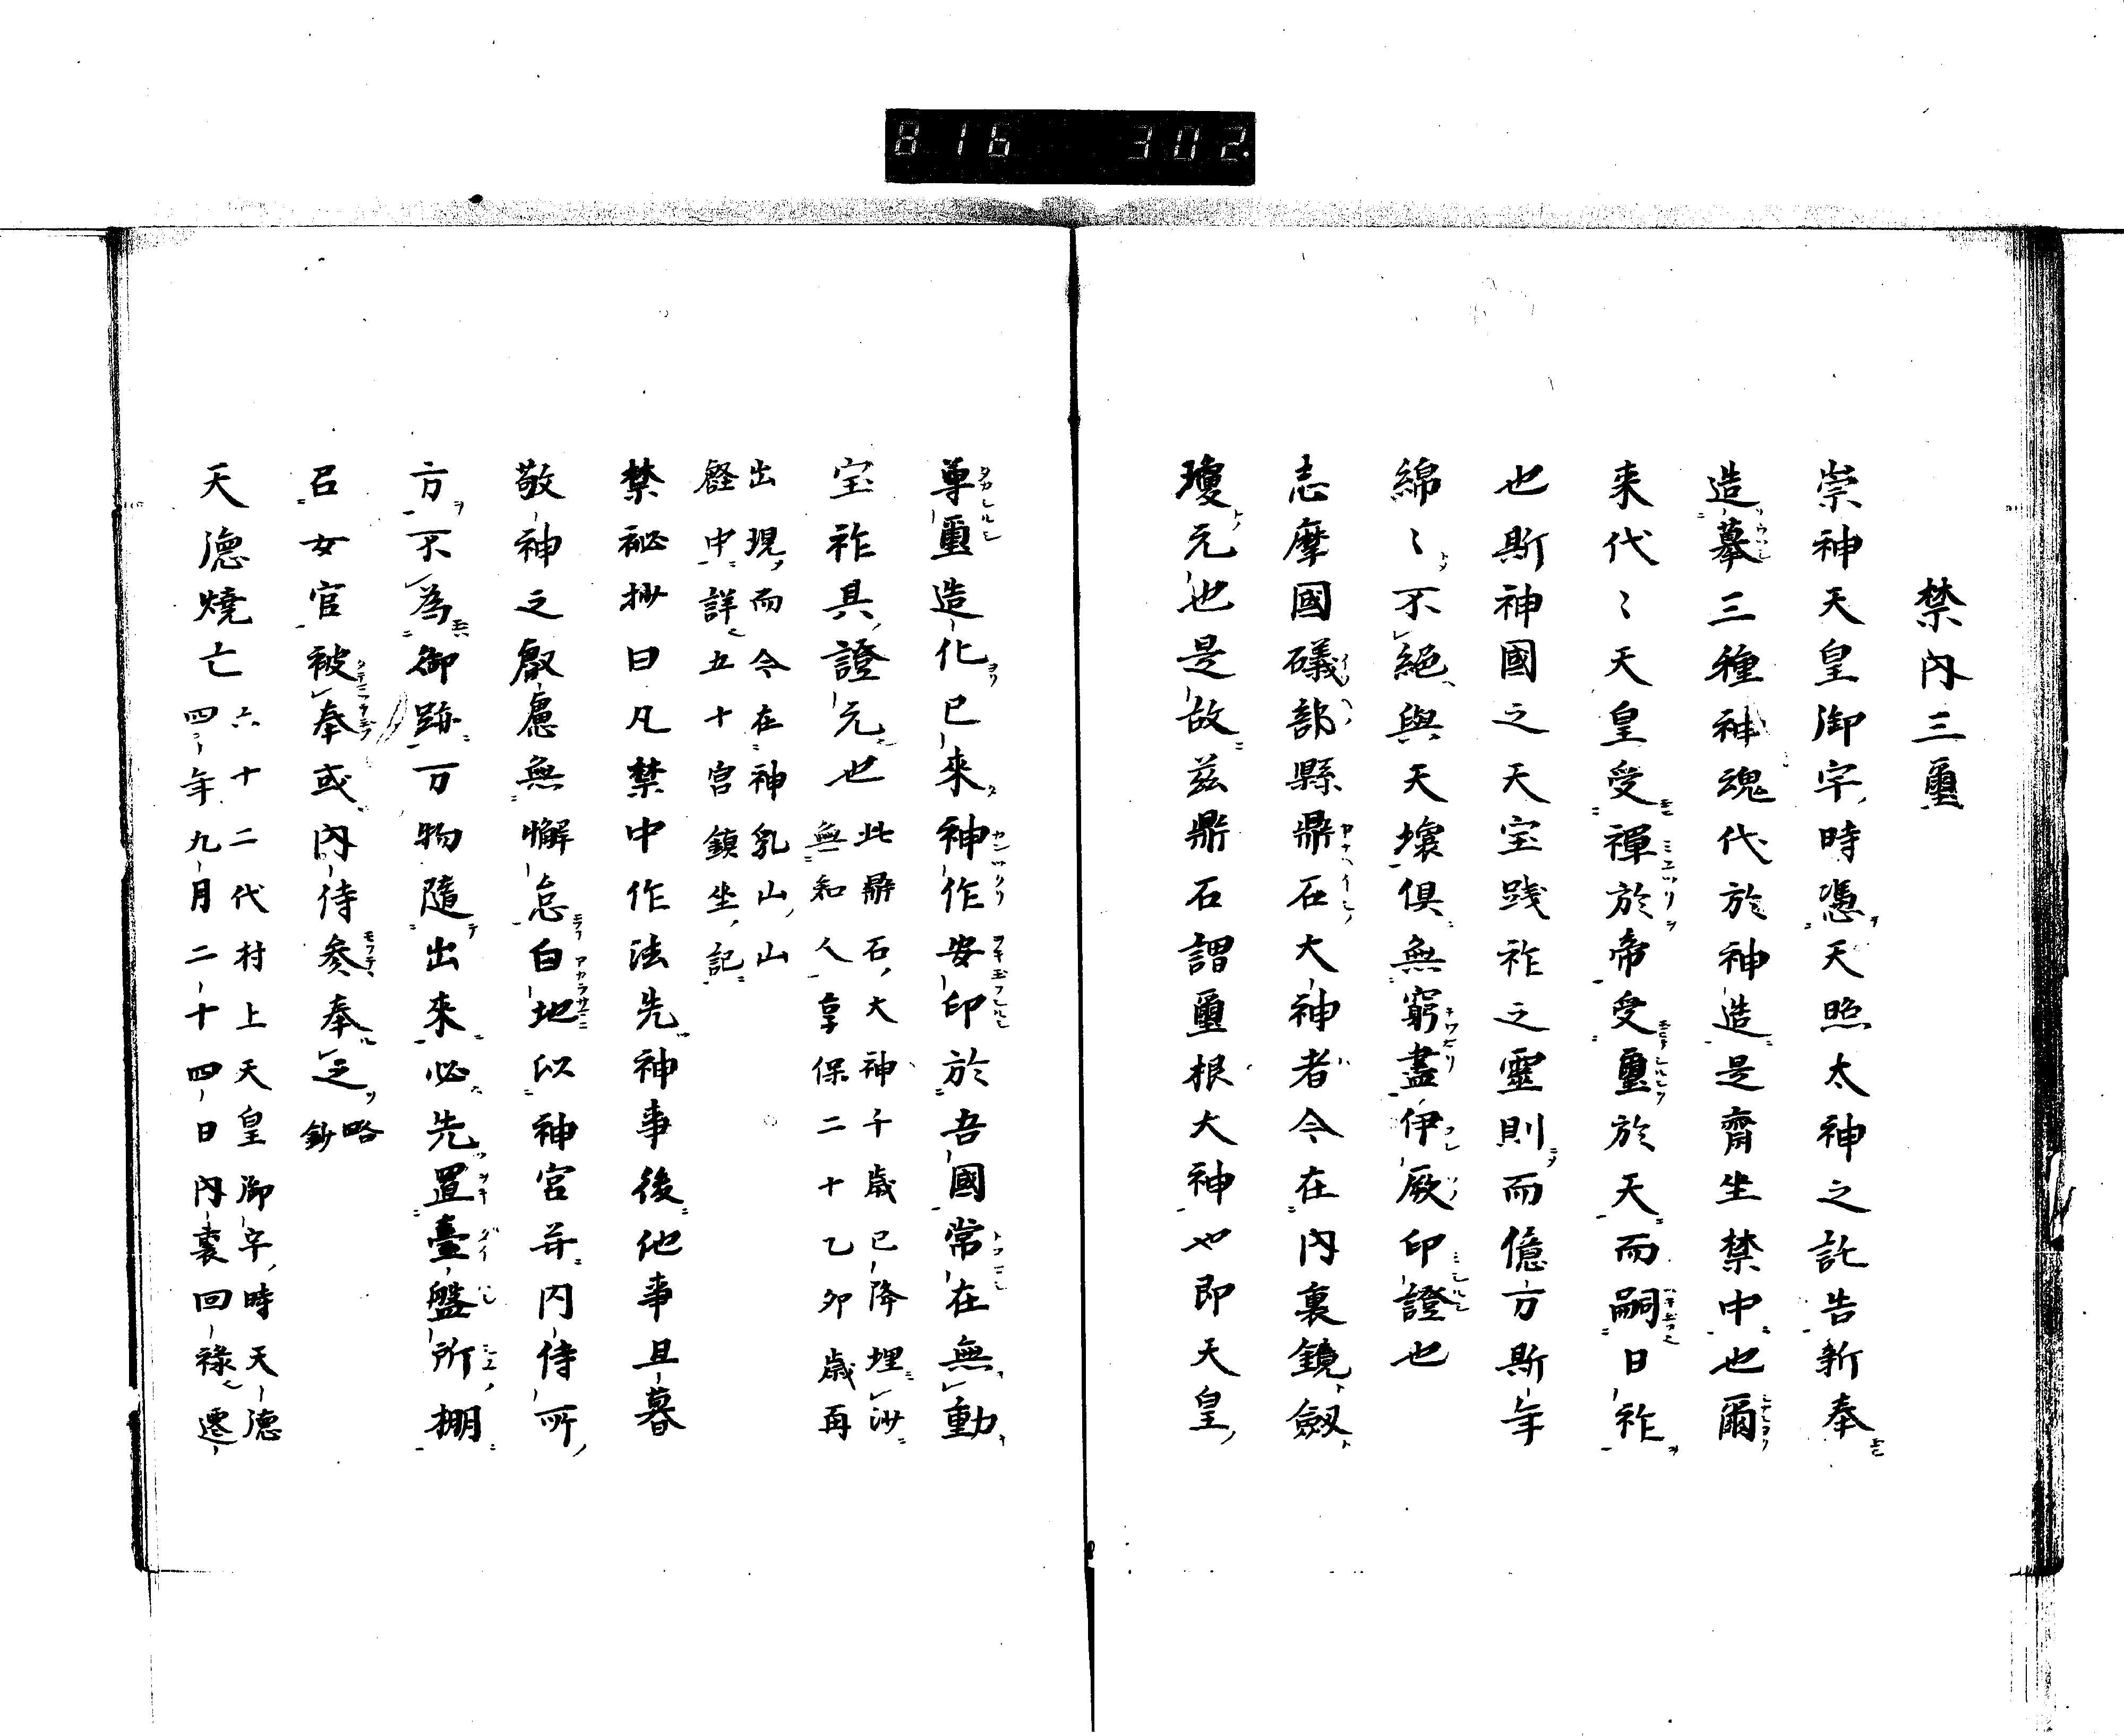 816 302
禁内三璽
崇神天皇御宇時憑天照太神之託告新奉
造摹三種神魂代於神造是齊坐禁中也爾
来代〻天皇受禪於帝受璽於天而嗣日祚
也斯神國之天宝践祚之靈則而億万斯年
綿〻不絕與天壤倶無窮盡伊厥印證也
志摩國礒部縣鼎石大神者今在内裏鏡劔
瓊元也是故茲鼎石謂璽根大神也即天皇
尊璽造化已來神作安印於吾國常在無動
宝祚具證元也 此鼎石大神千歳已降埋沙
無知人享保二十乙卯歳再
出現而今在神乳山山
中詳五十宮鎮坐記
禁祕抄曰凡禁中作法先神事後他事旦暮
敬神之叡慮無懈怠白地以神宮并内侍所
方不為御跡万物隨出來必先置臺盤所棚
召女官被奉或内侍参奉之 略
鈔
天德燒亡 六十二代村上天皇御宇時天德
四年九月二十四日内裏回祿遷